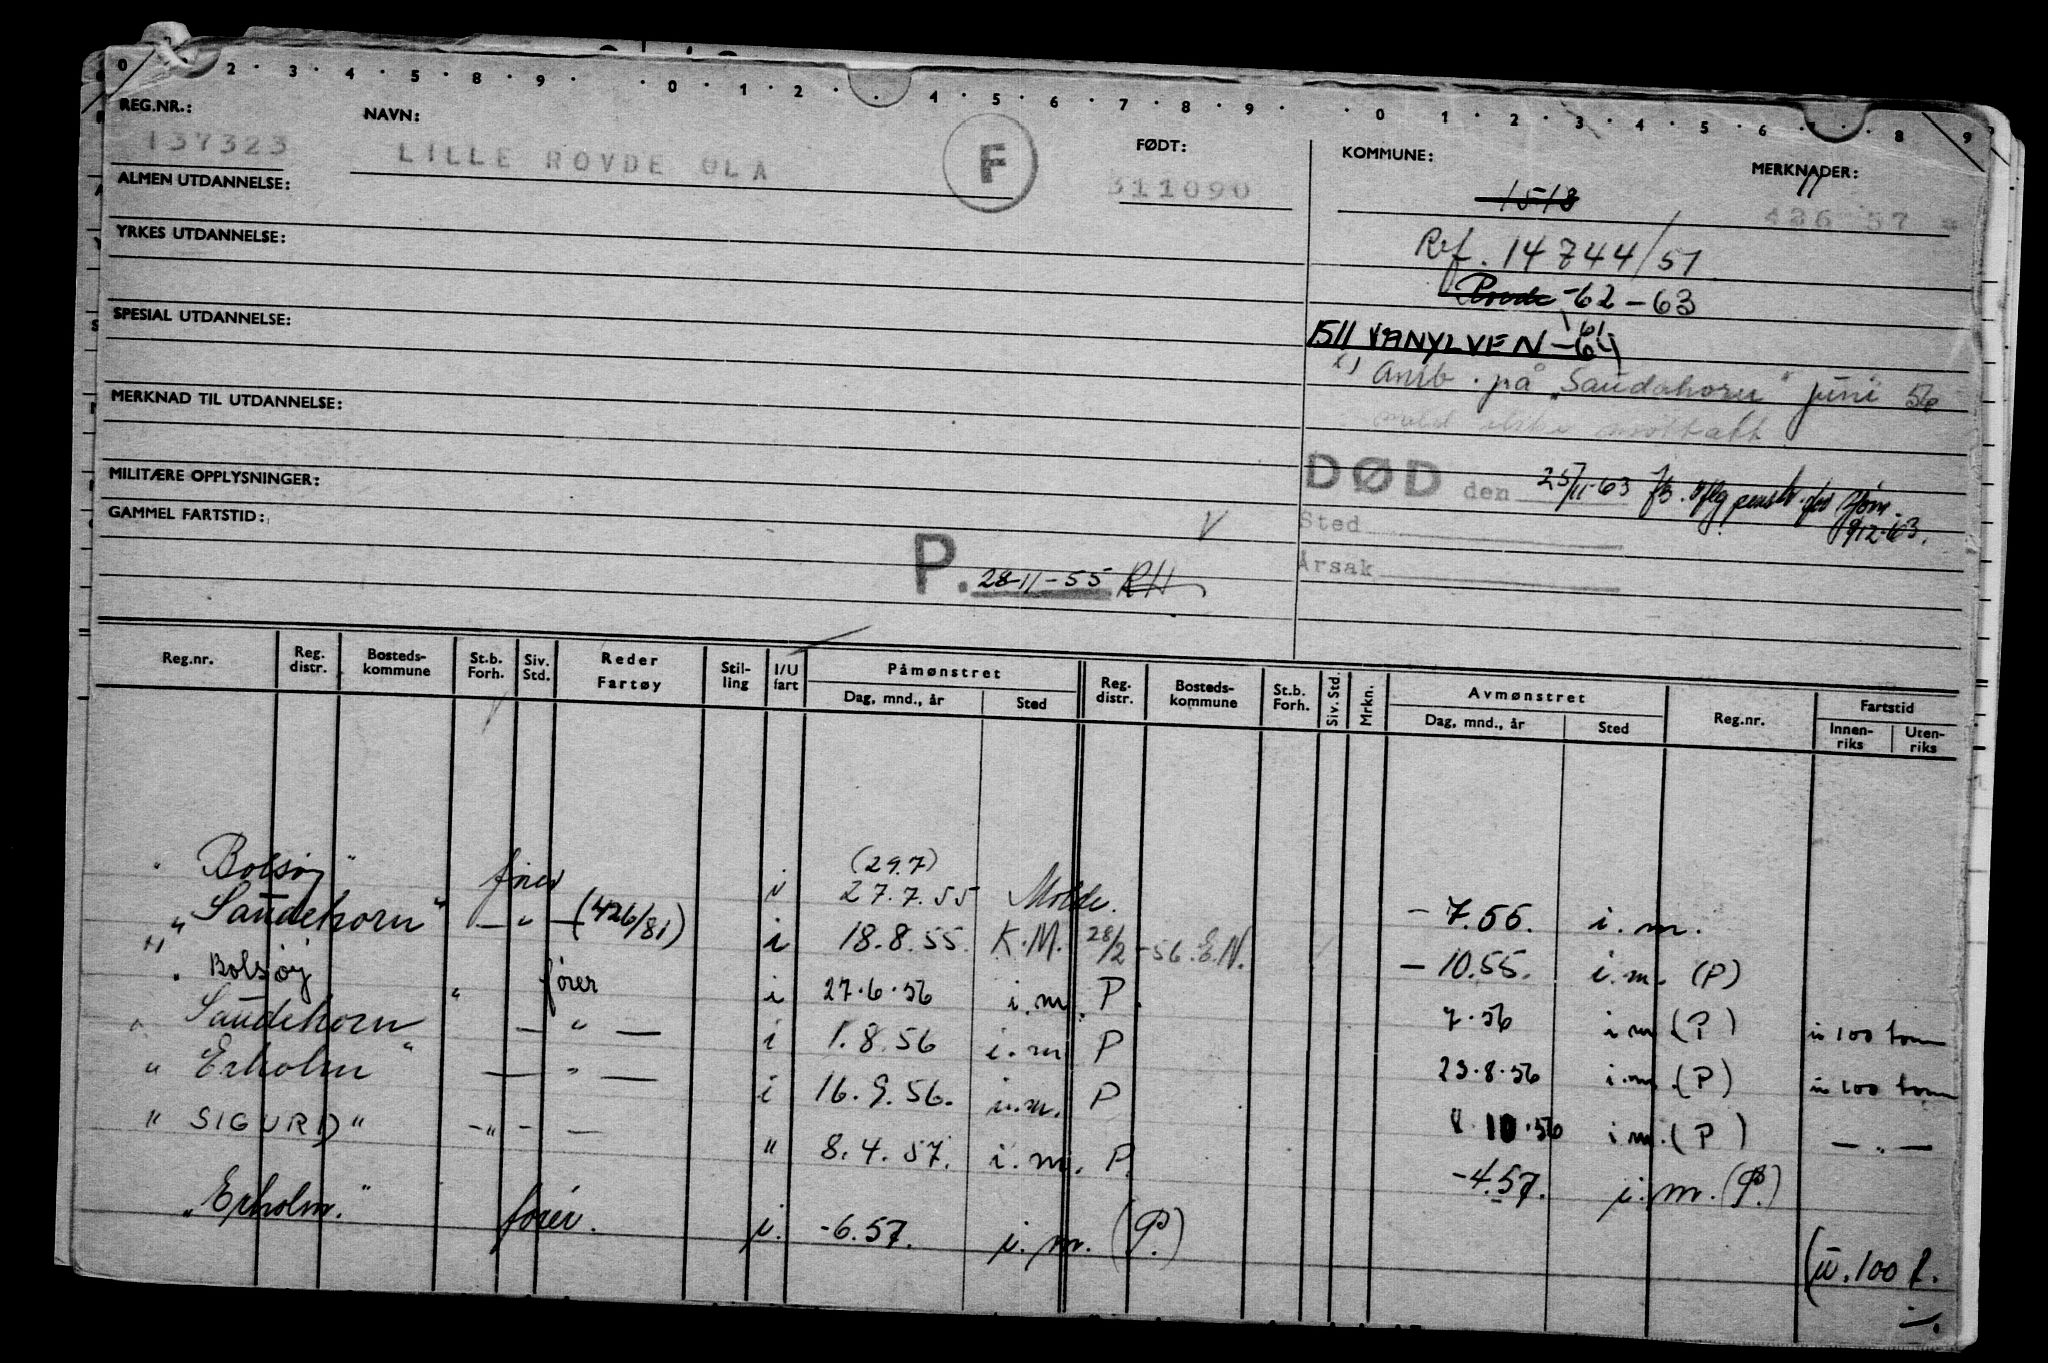 0 2 · 3 · 4 · 5 · 8 · 9 · · 0 · 1 · 2 · · 4 · 5 · 6 · 7 · 8 · 9 · · 0 · 1 · 2 · 3 · 4 · 5 · 6 · · 8 · 9
REG.NR.: NAVN: FØDT: KOMMUNE: MERKNADER:
137323 LILLE ROVDE OLA F 311090 1513 426 57
ALMEN UTDANNELSE:
Ref. 14744/51
YRKES UTDANNELSE:
Rovde -62-63
SPESIAL UTDANNELSE:
1511 VANYLVEN -64
1) Amb. på "Saudahorn" juni 56
MERKNAD TIL UTDANNELSE:
meld ikke mottatt
MILITÆRE OPPLYSNINGER:
DØD den 25/11-63
9/12-63.
GAMMEL FARTSTID:
Sted
P. 28-11-55 RH
Årsak
Reg.nr. Reg. distr. Bosteds-kommune St.b. Forh. Siv. Std. Reder Fartøy Stil-ling I/U fart Påmønstret Dag, mnd., år Sted Reg. distr. Bosteds-kommune St.b. Forh. Siv. Std. Mrkn. Avmønstret Dag, mnd., år Sted Reg.nr. Fartstid Innen-riks Uten-riks
(29.7)
" Bolsøy " fører i 27.7.55 Molde. - 7.55. i.m.
" Saudehorn " — " — (426/81) i 18.8.55. K.M. 28/2-56. E.N. - 10.55. i.m. (P)
" Bolsøy " fører i 27.6.56 i.m. P. 7.56 i.m. (P) u 100 tonn
" Saudehorn " — " — i 1.8.56 i.m P 23.8.56 i.m. (P) u 100 tonn
" Erholm " — " — i 16.9.56. i.m. P 8.10.56 i.m. (P) — " —
" SIGURD " - " - — " 8.4.57. i.m. P. -4.57. i.m. (P.)
" Erholm. " fører. i. -6.57. i.m. (P.) (u. 100 t.